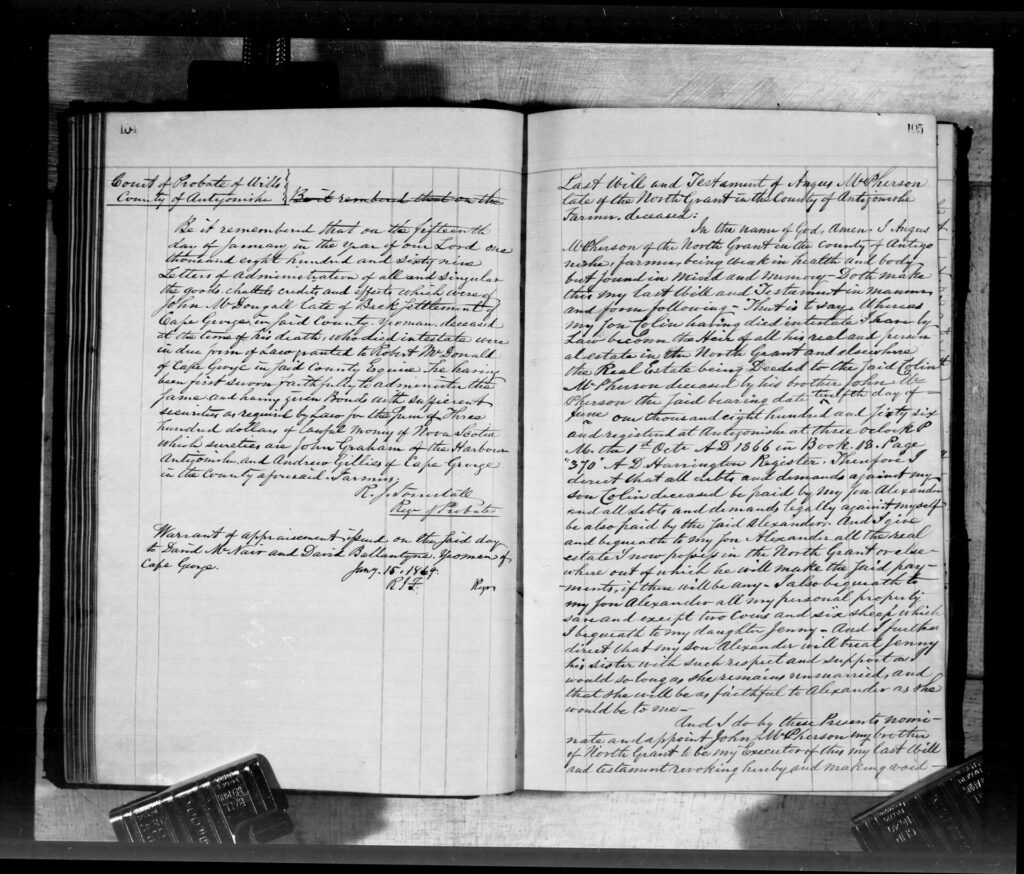 104
Court of Probate of Wills
County of Antigonishe
Be it rembered that on the
Be it remember that on the fifteenth
day of January in the year of our Lord one
thousand eight hundred and sixty nine
Letters of Administration of all and singular
the goods, chattels, credits and effects which were of
John McDougall late of Back Settlement of
Cape George in said County, Yeoman, deceased
at the time of his death, who died intestate were
in due form of Law granted to Robert McDonald
of Cape George in said County Esquire. He having
been first sworn faithfully to administer the
same and having given Bonds with sufficient
securities as required by Law for the sum of Three
hundred dollars of Lawful money of Nova Scotia
which sureties are John Graham of the Harbour
Antigonishe, and Andrew Gillies of Cape George
in the County aforesaid. Farmers.
Regr of Probate
Warrant of appraisement issued on the said day
to David McNair and David Ballantyne. Yeomen of
Cape George.
Jany. 15. 1869.
R J F. Regr
105
Last Will and Testament of Angus McPherson
late of the North Grant in the County of Antigonishe
Farmer, deceased:
In the name of God, Amen. I Angus
McPherson of the North Grant in the county of Antigo
nishe, farmer, being weak in health and body,
but sound in mind and memory - Doth make
this my last Will and Testament in manner
and form following. That is to say. Whereas
my son Colin having died intestate I have by
Law become the Heir of all his real and person
al estate in the North Grant and elsewhere
the Real Estate being Deeded to the said Colin
McPherson deceased by his brother John Mc
Pherson the said bearing date twelfth day of
June one thousand eight hundred and sixty six
and registered at Antigonishe at three oclock P
M. the 1st Octr A D 1866 in Book 18. Page
370 A D. Harrington Register. Therefore I
direct that all debts and demands against my
son Colin deceased be paid by my son Alexander
and all debts and demands legally against myself
be also paid by the said Alexander. And I give
and bequeath to my son Alexander all the real
estate I now possess in the North Grant or else-
where out of which he will make the said pay-
ments, if there will be any - I also bequeath to
my son Alexander all my personal property
save and except two Cows and six sheep which
I bequeath to my daughter Jenny - And I further
direct that my son Alexander will treat Jenny
his sister with such respect and support as I
would so long as she remains unmarried, and
that she will be as faithful to Alexander as she
would be to me -
And I do by these Presents nomi-
nate and appoint John McPherson my brother
of North Grant to be my Executor of this my last Will
and testament revoking hereby and making void -